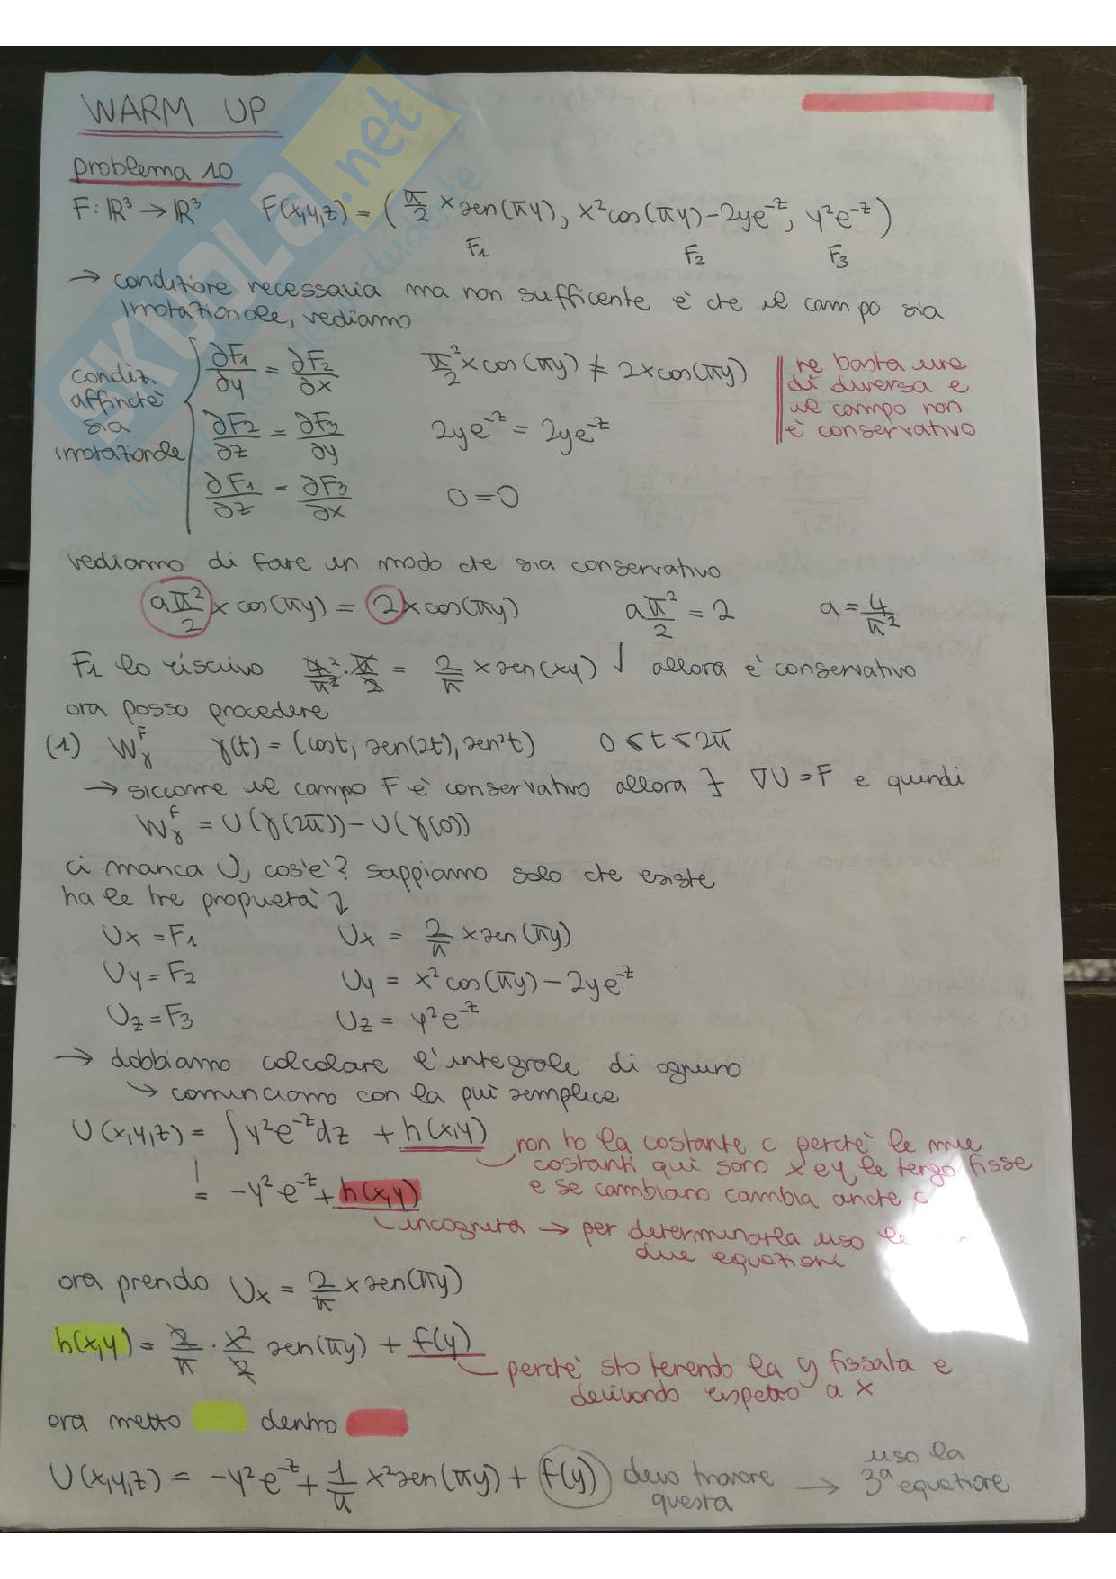 WARM UP
problema 10
F: ℝ³ → ℝ³ F(x,y,z) = ( π/2 x sen(πy), x² cos(πy) - 2ye^-z, y² e^-z )
F1 F2 F3
→ condizione necessaria ma non sufficente è che il campo sia
irrotazionale, vediamo
condiz. affinché sia irrotazionale
∂F1/∂y = ∂F2/∂x π²/2 x cos(πy) ≠ 2x cos(πy)
∂F2/∂z = ∂F3/∂y 2ye^-z = 2ye^-z
∂F1/∂z = ∂F3/∂x 0=0
ne basta una
di diversa e
il campo non
è conservativo
vediamo di fare in modo che sia conservativo
aπ²/2 x cos(πy) = 2 x cos(πy) aπ²/2 = 2 a = 4/π²
F1 lo riscrivo 4²/π² · π/2 = 2/π x sen(xy) ↓ allora è conservativo
ora posso procedere
(1) W_γ^F γ(t) = (cost, sen(2t), sen²t) 0 ≤ t ≤ 2π
→ siccome il campo F è conservativo allora ∃ ∇U = F e quindi
W_γ^F = U(γ(2π)) - U(γ(0))
ci manca U, cos'è? sappiamo solo che esiste
ha le tre proprietà
Ux = F1 Ux = 2/π x sen(πy)
Uy = F2 Uy = x² cos(πy) - 2ye^-z
Uz = F3 Uz = y² e^-z
→ dobbiamo calcolare l'integrale di ognuno
↳ cominciamo con la più semplice
U(x,y,z) = ∫ y² e^-z dz + h(x,y)
non ho la costante c perché le mie
costanti qui sono x e y le tengo fisse
e se cambiano cambia anche c
= -y² e^-z + h(x,y)
incognita → per determinarla uso le
due equazioni
ora prendo Ux = 2/π x sen(πy)
h(x,y) = 2/π · x²/2 sen(πy) + f(y)
perché sto tenendo la y fissata e
derivando rispetto a x
ora metto dentro
U(x,y,z) = -y² e^-z + 1/π x² sen(πy) + f(y) devo trovare
questa
→ uso la
3ª equazione
SKUOLA.net